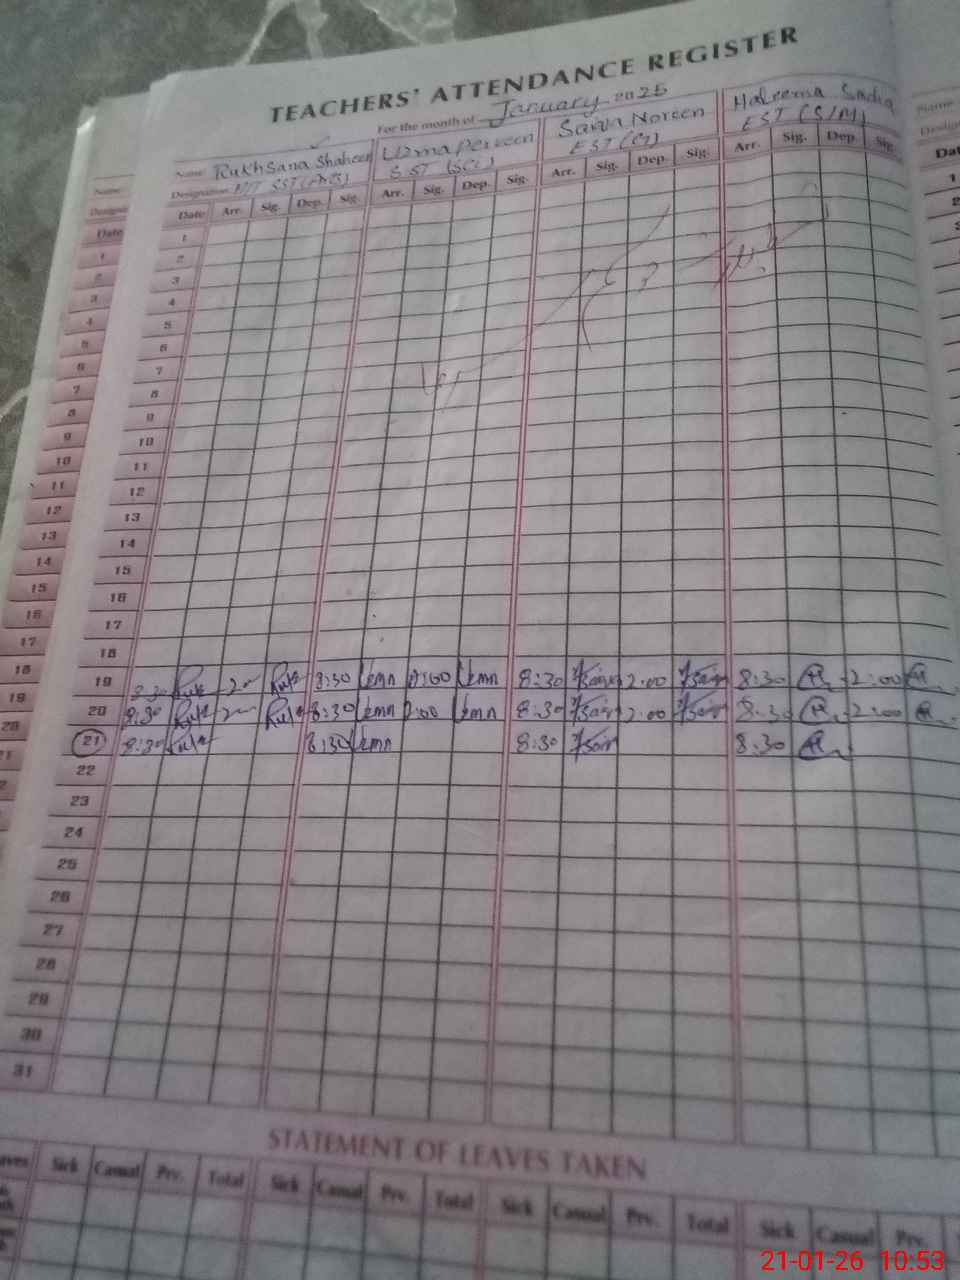 TEACHERS' ATTENDANCE REGISTER
For the month of January 2025
Name Rukhsana Shaheen Uzma Perveen Saira Noreen Haleema Sadia
Designation SST (Arts) SST (Sci) EST (G) EST (S/M)
Date Arr. Sig. Dep. Sig. Arr. Sig. Dep. Sig. Arr. Sig. Dep. Sig. Arr. Sig. Dep. Sig.
1
2
3
4
5
6
7
8
9
10
11
12
13
14
15
16
17
18
19 8:30 8:30 2:00 8:30 2:00 8:30 2:00
20 8:30 8:30 2:00 8:30 2:00 8:30 2:00
21 8:30 8:30 8:30 8:30
22
23
24
25
26
27
28
29
30
31
STATEMENT OF LEAVES TAKEN
Sick Casual Prv. Total Sick Casual Prv. Total Sick Casual Prv. Total Sick Casual Prv.
21-01-26 10:53